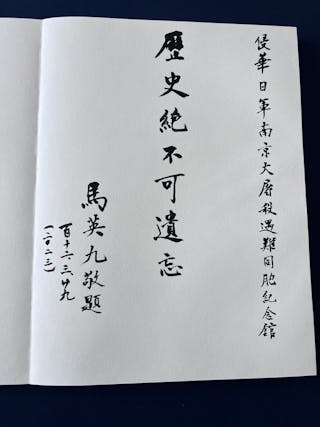 侵華日軍南京大屠殺遇難同胞紀念館
歷史絕不可遺忘
馬英九敬題
百十二、三、廿九
(二〇二三)